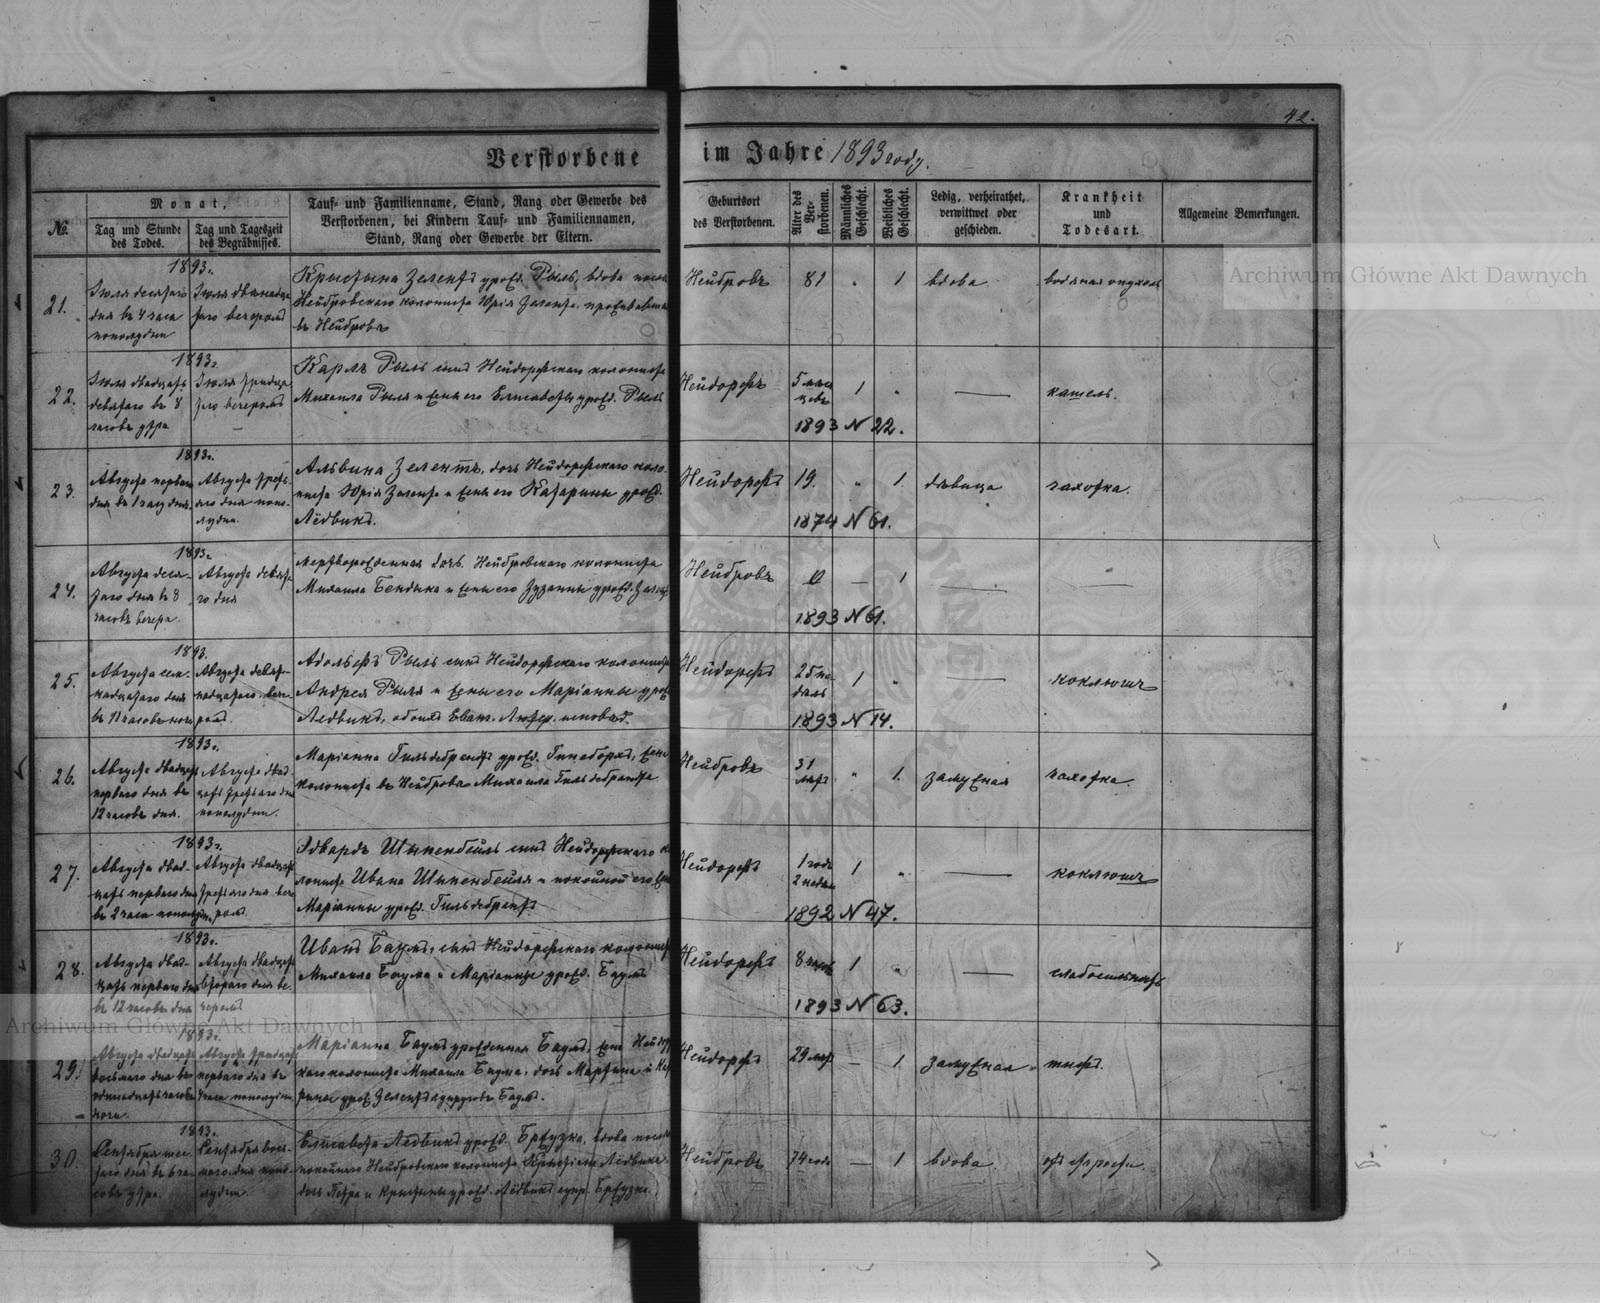 42.
Verstorbene im Jahre 1893 году.
№
Monat,
Tag und Stunde des Todes.
Tag und Tageszeit des Begräbnisses.
Tauf- und Familienname, Stand, Rang oder Gewerbe des
Verstorbenen, bei Kindern Tauf- und Familiennamen,
Stand, Rang oder Gewerbe der Eltern.
Geburtsort
des Verstorbenen.
Alter des Verstorbenen.
Männliches Geschlecht.
Weibliches Geschlecht.
Ledig, verheirathet,
verwittwet oder
geschieden.
Krankheit
und
Todesart.
Allgemeine Bemerkungen.
21.
1893г.
Іюля десятаго
дня въ 4 часа
пополудни
Іюля двѣнадца
таго вечеромъ
Крыстына Зелентъ урожд. Рыль, вдова
Нейбровскаго колониста Юрія Зелента
въ Нейбровѣ
Нейбровъ
81
1
вдова
водяная опухоль
22.
1893г.
Іюля двадцать
девятаго въ 8
часовъ утра
Іюля тридца
таго вечеромъ
Карлъ Рыль сынъ Нейдорфскаго колониста
Михаила Рыля и жены его Елисаветы урожд. Рыль
Нейдорфъ
5 меся
цевъ
1
кашель.
1893 N 22.
23.
1893г.
Августа перваго
дня въ 1 часу дня.
Августа треть
яго дня попо-
лудни.
Альвина Зелентъ, дочь Нейдорфскаго коло-
ниста Юрія Зелента и жены его Катарины урожд.
Лёдвикъ.
Нейдорфъ
19.
1
дѣвица
чахотка.
1874 N 61.
24.
1893г.
Августа деся-
таго дня въ 8
часовъ вечера.
Августа девята
го дня
мертворожденная дочь Нейбровскаго колониста
Михаила Бендыка и жены его Зузанны урожд. Зелентъ
Нейбровъ
0
1
1893 N 61.
25.
1893.
Августа сем-
надцатаго дня
въ 11 часовъ ночи
Августа девят-
надцатаго, вече
ромъ.
Адольфъ Рыль сынъ Нейдорфскаго колониста
Андрея Рыля и жены его Маріанны урожд
Лёдвикъ, обоихъ Еванг. Лютер. исповѣд.
Нейдорфъ
25 не
дѣль
1
коклюшъ
1893 N 14.
26.
1893г.
Августа двадцать
перваго дня въ
12 часовъ дня.
Августа двад
цать третьяго дня
пополудни.
Маріанна Гильдебрантъ урожд. Гинеборхъ, жена
колониста въ Нейбровѣ Михаила Гильдебранта
Нейбровъ
31
лѣтъ
1.
замужняя
чахотка.
27.
1893г.
Августа двад-
цать перваго дня
въ 2 часа пополудни
Августа двадцать
третьяго дня вече
ромъ.
Эдвардъ Шыпенбейль сынъ Нейдорфскаго ко
лониста Ивана Шыпенбейля и покойной его жены
Маріанны урожд. Гильдебрантъ
Нейдорфъ
1 годъ
2 недѣли
1
коклюшъ
1892 N 47.
28.
1893г.
Августа двад-
цать перваго дня
въ 12 часовъ дня
Августа двадцать
втораго дня ве
черомъ
Иванъ Баумъ, сынъ Нейдорфскаго колониста
Михаила Баума и Маріанны урожд. Баумъ
Нейдорфъ
8
1
слабосильность
1893 N 63.
29.
1893г.
Августа двадцать
восьмого дня въ
одинадцать часовъ
ночи.
Августа тридцать
перваго дня въ
часа пополудни
Маріанна Баумъ урожденная Баумъ, жена Нейдорф
скаго колониста Михаила Баума, дочь Мартина и Кат
рины урожд. Зелентъ супруговъ Баумъ.
Нейдорфъ
29 лѣтъ
1
замужняя
тифъ.
30.
1893.
Сентября шес-
таго дня въ 6 ча-
совъ утра.
Сентября вось-
маго дня попо-
лудни.
Елисавета Лёдвикъ урожд. Бржузка, вдова послѣ
покойнаго Нейбровскаго колониста Крыстіана Лёдвика.
дочь Петра и Крыстыны урожд. Лёдвикъ супр. Бржузка.
Нейбровъ
74 года
1
вдова.
отъ старости
Archiwum Główne Akt Dawnych
Archiwum Główne Akt Dawnych